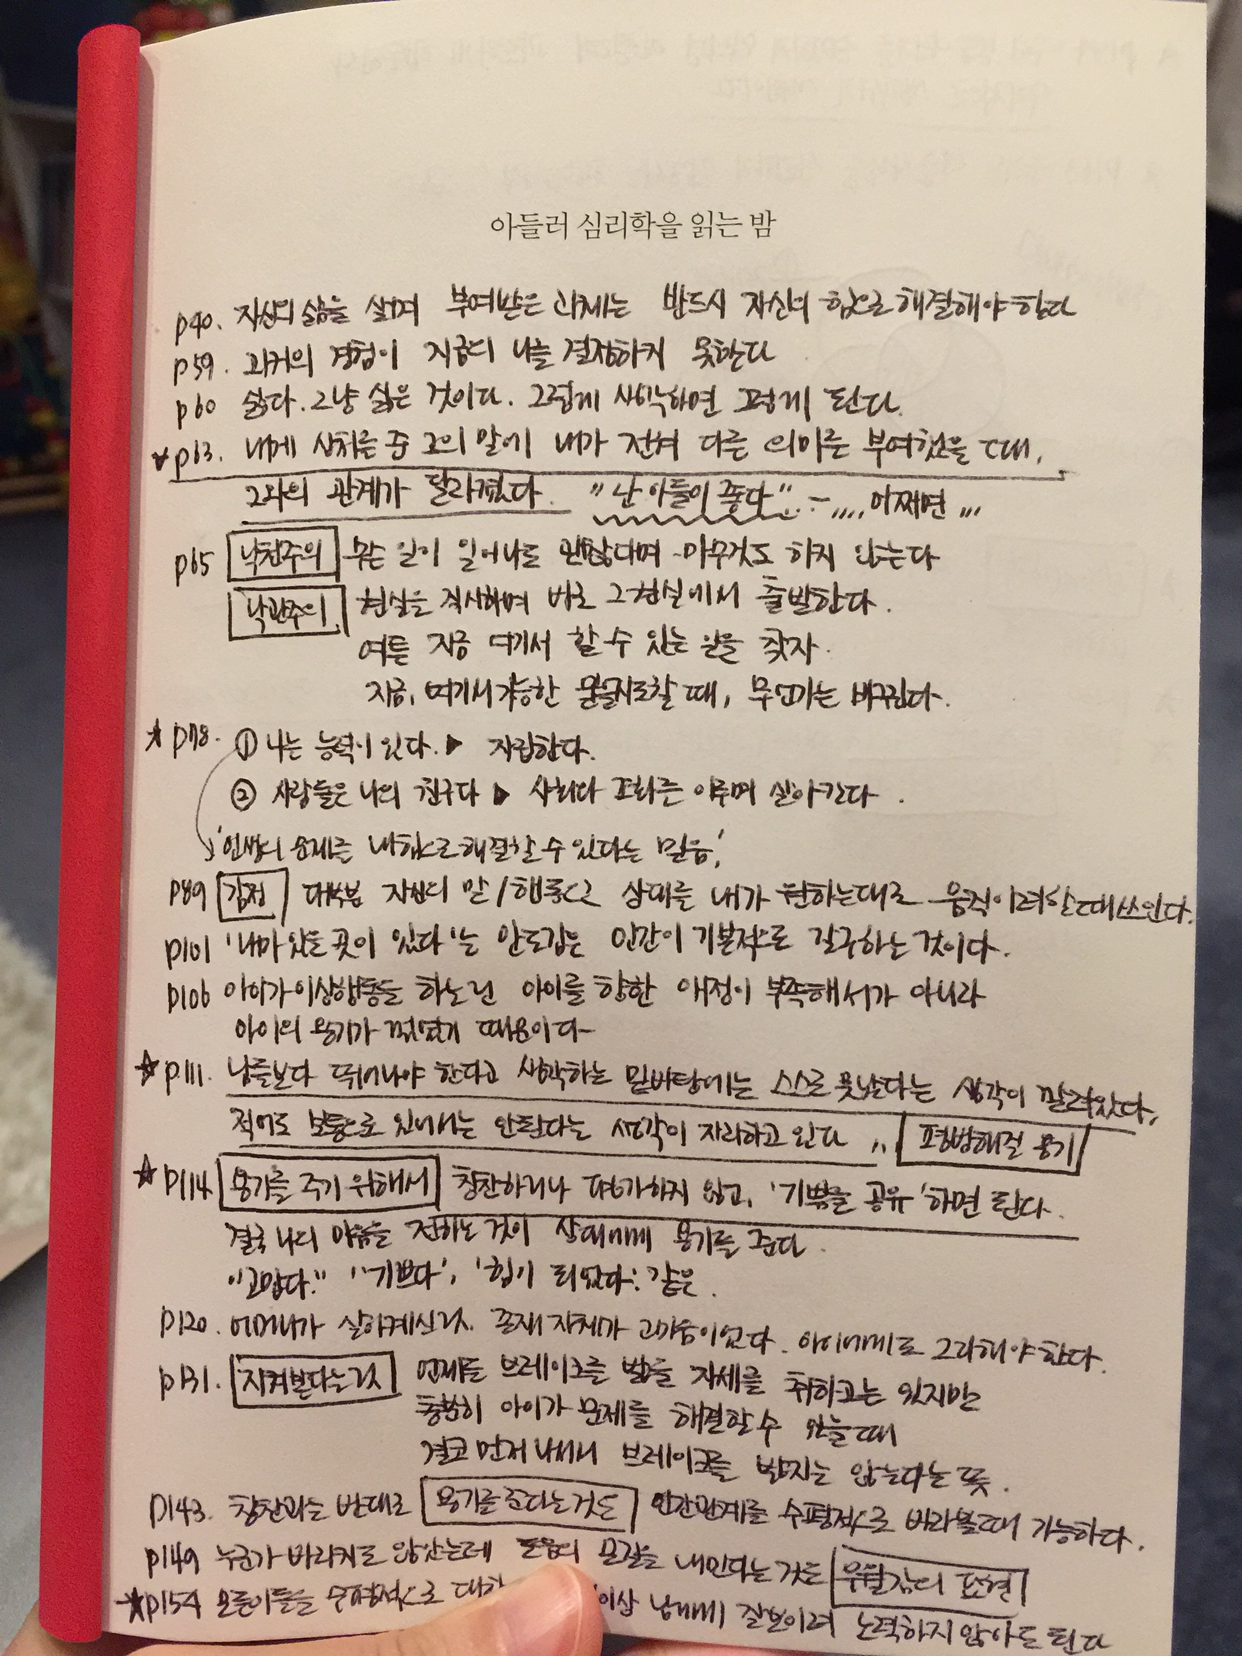 아들러 심리학을 읽는 밤
p40. 자신의 삶을 살며 부여받은 과제는 반드시 자신의 힘으로 해결해야 한다
p59. 과거의 경험이 지금의 나를 결정하지 못한다
p60 싫다. 그냥 싫은 것이다. 그렇게 생각하면 편하게 된다.
p63. 내게 상처를 준 그의 말에 내가 전혀 다른 의미를 부여했을 때,
그와의 관계가 달라졌다. "난 아들이 좋다" - ,,,, 어쩌면 ,,,
p65 낙천주의 무슨 일이 일어나도 괜찮다며 아무것도 하지 않는다
낙관주의 현실을 직시하며 바로 그 현실에서 출발한다.
여튼 지금 여기서 할 수 있는 일을 찾자.
지금, 여기서 가능한 일을 시도할 때, 무언가는 바뀐다.
☆ p78. ① 나는 능력이 있다. ▶ 자립한다.
② 사람들은 나의 친구다 ▶ 사회와 조화를 이루며 살아간다.
'인생의 문제를 내 힘으로 해결할 수 있다는 믿음,'
p89 감정 대부분 자신의 말/행동으로 상대를 내가 원하는대로 움직이려 할 때 쓰인다.
p101 '내가 있을 곳이 있다'는 안도감은 인간이 기본적으로 갈구하는 것이다.
p106 아이가 이상행동을 하는건 아이를 향한 애정이 부족해서가 아니라
아이의 용기가 꺾였기 때문이다
☆ p111. 남들보다 뛰어나야 한다고 생각하는 밑바탕에는 스스로 못났다는 생각이 깔려있다,
적어도 보통으로 있어서는 안된다는 생각이 자리하고 있다 ,, 평범해질 용기
☆ p114 용기를 주기 위해서 칭찬하거나 평가하지 않고, '기쁨을 공유'하면 된다.
결국 나의 마음을 전하는 것이 상대에게 용기를 준다.
"고맙다." "기쁘다", '힘이 되었다.' 같은.
p120. 어머니가 살아계신 것. 존재 자체가 고마움이었다. 아이에게도 그리해야 한다.
p131. 지켜본다는 것 언제든 브레이크를 밟을 자세를 취하고는 있지만
충분히 아이가 문제를 해결할 수 있을 때
결코 먼저 나서서 브레이크를 밟지는 않는다는 뜻.
p143. 칭찬과는 반대로 용기를 준다는 것은 인간관계를 수평적으로 바라볼 때 가능하다.
p149 누군가 바라지도 않았는데 도움의 손길을 내민다는 것은 우월감의 표현
☆ p154 모든이들을 수평적으로 대하 이상 남에게 잘보이려 노력하지 않아도 된다